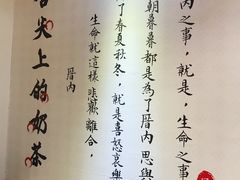 內之事，就是，生命之事
朝暮暮都是為了厝內思與
了春夏秋冬，就是喜怒哀樂
生命就這樣悲歡離合，
厝內
舌尖上的奶茶